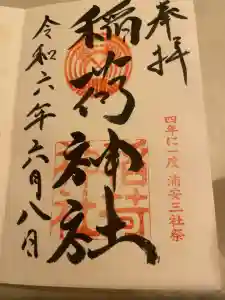 奉拝
四年に一度 浦安三社祭
稲荷神社
稲荷神社
令和六年六月八月